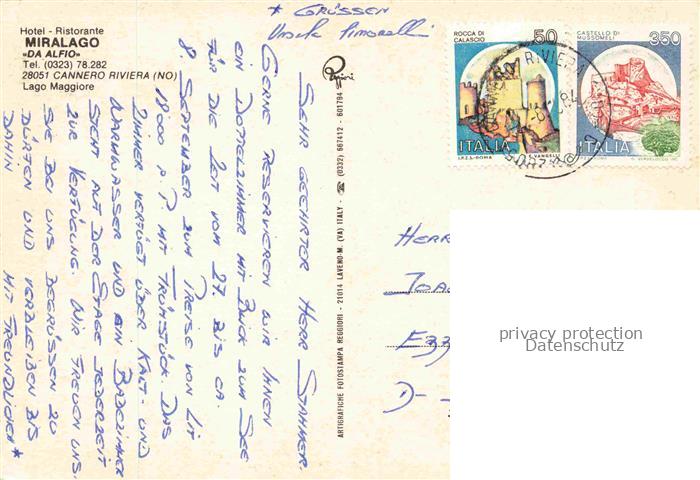 Hotel - Ristorante
MIRALAGO
«DA ALFIO»
Tel. (0323) 78.282
28051 CANNERO RIVIERA (NO)
Lago Maggiore
SEHR GEEHRTER HERR STAMMER.
GERNE RESERVIEREN WIR IHNEN
EIN DOPPELZIMMER MIT BLICK ZUM SEE
FÜR DIE ZEIT VOM 27. BIS CA.
8. SEPTEMBER ZUM PREISE VON LIT
18'000 P. P. MIT FRÜHSTÜCK. DAS
ZIMMER VERFÜGT ÜBER KALT- UND
WARMWASSER UND EIN BADEZIMMER
STEHT AUF DER ETAGE JEDERZEIT
ZUR VERFÜGUNG. WIR FREUEN UNS.
SIE BEI UNS BEGRÜSSEN ZU
DÜRFEN UND VERBLEIBEN BIS
DAHIN MIT FREUNDLICHEN *
* GRÜSSEN
ARTIGRAFICHE FOTOSTAMPA REGGIORI - 21014 LAVENO-M. (VA) ITALY - ☎ (0332) 667412 - 601784
ROCCA DI
CALASCIO
50
ITALIA
I.P.Z.S.-ROMA
E. VANGELLI
CASTELLO DI
MUSSOMELI
350
ITALIA
RIVIERA
HERR
D-
privacy protection
Datenschutz